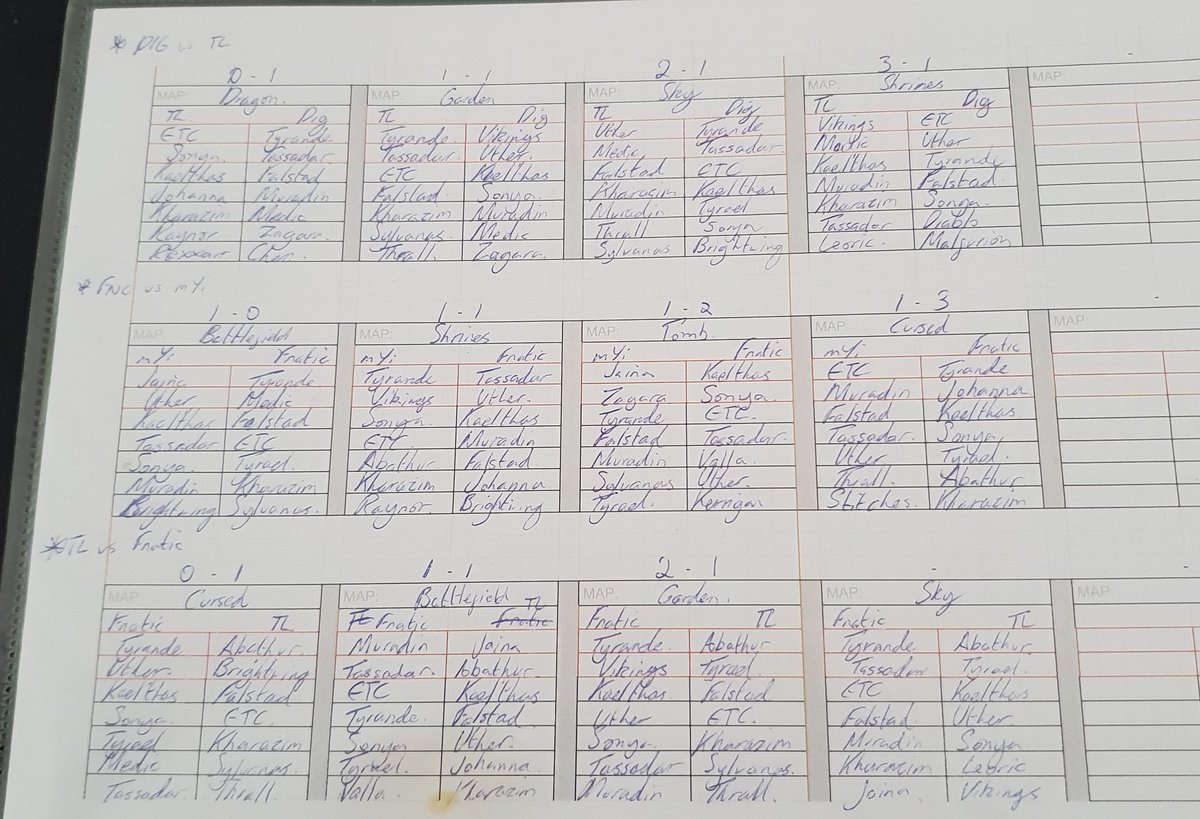 * DIG vs TL
0 - 1 1 - 1 2 - 1 3 - 1 -
MAP: Dragon. MAP: Garden MAP: Sky MAP: Shrines MAP:
TL. Dig TL Dig TL Dig TL Dig
ETC Tyrande Tyrande Vikings Uther Tyrande Vikings ETC
Sonya. Tassadar Tassadar. Uther. Medic Tassadar. Uther
Kaelthas Falstad ETC Kaelthas Falstad ETC Kaelthas Tyrande
Johanna Muradin Falstad. Sonya. Kharazim Kaelthas Muradin Falstad
Kharazim Medic Kharazim Muradin Muradin Tyrael Kharazim Sonya.
Raynor Zagara. Sylvanas. Medic Thrall Sonya Tassadar Diablo
Rexxar Chen. Thrall. Zagara. Sylvanas Brightwing Leoric. Malfurion
* FNC vs mYi
1 - 0 1 - 1 1 - 2 1 - 3 -
MAP: Battlefield MAP: Shrines MAP: Tomb. MAP: Cursed MAP:
mYi Fnatic mYi Fnatic mYi Fnatic mYi Fnatic
Jaina Tyrande Tyrande Tassadar Jaina Kaelthas ETC Tyrande
Uther Medic Vikings Uther. Zagara Sonya Muradin Johanna
Kaelthas Falstad Sonya. Kaelthas Tyrande ETC. Falstad Kaelthas
Tassadar ETC ETC Muradin Falstad Tassadar. Tassadar. Sonya,
Sonya. Tyrael. Abathur Falstad Muradin Valla Uther Tyrael.
Muradin Kharazim Kharazim Johanna Sylvanas Uther. Thrall. Abathur
Brightwing Sylvanus. Raynor Brightwing Tyrael. Kerrigan Stitches. Kharazim
* TL vs Fnatic
0 - 1 1 - 1 2 - 1 - -
MAP: Cursed MAP: Battlefield MAP: Garden. MAP: Sky MAP:
Fnatic TL Fnatic Fnatic TL Fnatic TL Fnatic TL
Tyrande Abathur. Muradin Jaina Tyrande. Abathur Tyrande Abathur.
Uther. Brightwing Tassadar. Abathur. Vikings Tyrael Tassadar Tyrael.
Kaelthas Falstad ETC Kaelthas Kaelthas Falstad ETC Kaelthas
Sonya. ETC. Tyrande. Falstad. Uther ETC. Falstad Uther.
Tyrael Kharazim Sonya Uther. Sonya. Kharazim Muradin Sonya
Medic Sylvanas. Tyrael. Johanna. Tassadar Sylvanas. Kharazim Leoric
Tassadar. Thrall. Valla Kharazim Muradin Thrall. Jaina Vikings